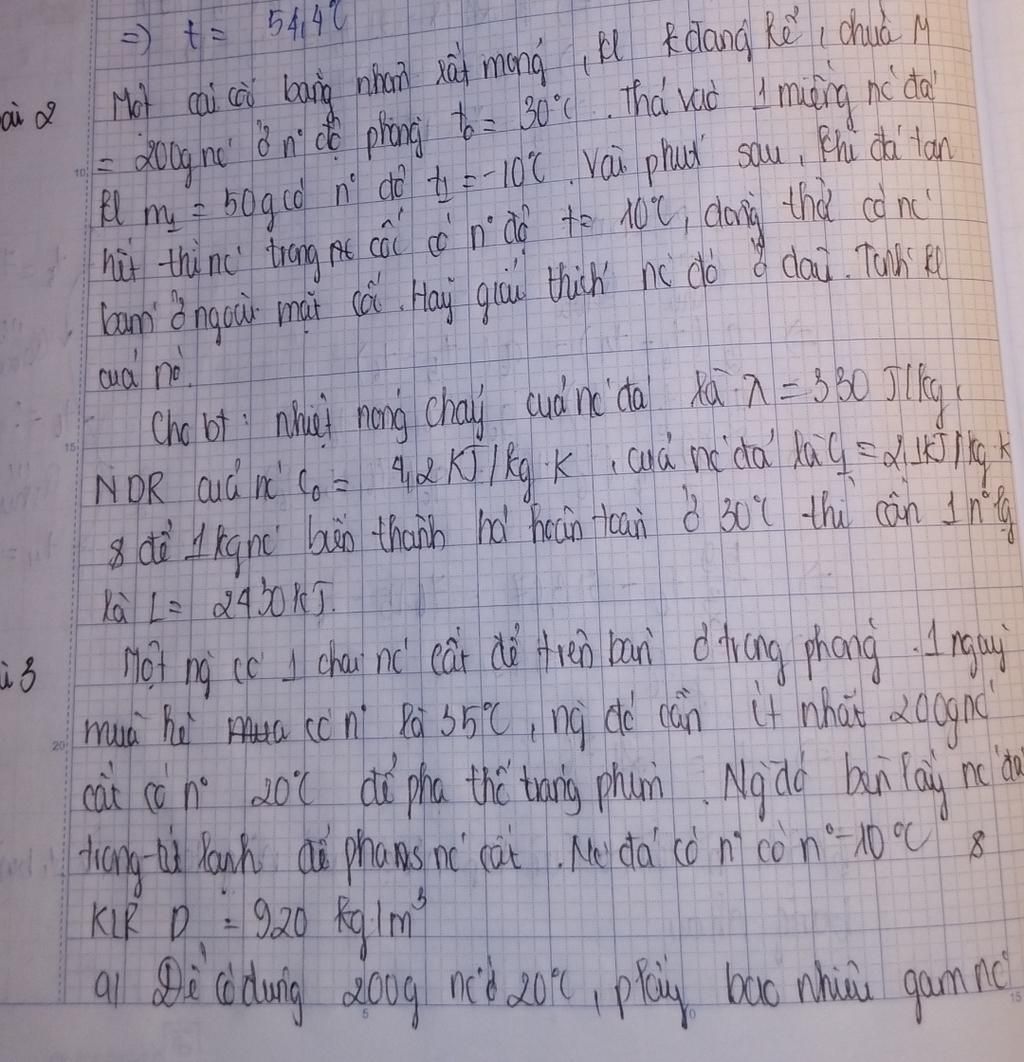 => t = 54,4°C
ài 2 Một cái cốc bằng nhôm rất mỏng, kl k đáng kể, chứa M
= 200g nc' ở n° độ phòng t₀ = 30°C. Thả vào 1 miếng nc' đá
kl m₁ = 50g có n° độ t₁ = -10°C. Vài phút sau, khi đá tan
hết thì nc' trong cốc có n° độ t = 10°C, đồng thời có nc'
bám ở ngoài mặt cốc. Hãy giải thích nc' đó ở đâu. Tính kl
của nó.
Cho bt: nhiệt nóng chảy của nc' đá là λ = 330 J/kg,
NDR của nc' C₀ = 4,2 KJ/kg.K, của nc' đá là C₁ = 2,1KJ/kg.K
& để 1kg nc' biến thành hơi hoàn toàn ở 30°C thì cần 1 n° lg
là L = 2430 KJ.
i 3 Một ng có 1 chai nc' cất để trên bàn ở trong phòng. 1 ngày
mùa hè có n° là 35°C, ng đó cần ít nhất 200g nc'
cất có n° 20°C để pha thế tráng phim. Ng đó bèn lấy nc' đá
trong tủ lạnh để pha vs nc' cất. Nc' đá có n° có n° -10°C &
KLR D = 920 kg/m³
a/ Để có đúng 200g nc' ở 20°C, p lấy bao nhiêu gam nc'